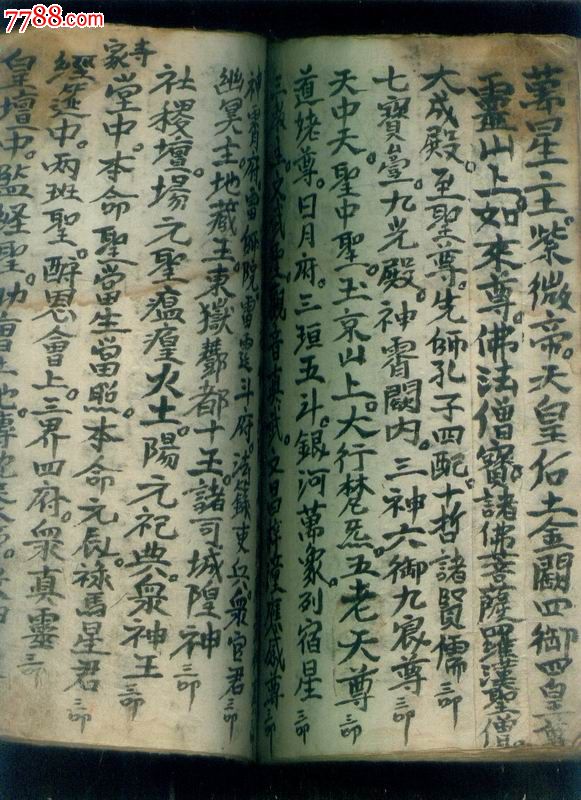 7788.com
萬星主。紫微帝。天皇后土金闕四御四皇尊
靈山上。如來尊。佛法僧寶。諸佛菩薩羅漢聖僧
大成殿。至聖尊。先師孔子四配。十哲諸賢儒三叩
七寶臺。九光殿。神霄闕內。三神六御九宸尊三叩
天中天。聖中聖。玉京山上。大行梵炁。五老天尊三叩
道姥尊。日月府。三垣五斗。銀河萬象。列宿星三叩
觀音真武。文昌梓潼應感尊三叩
神霄府。雷師院。雷霆斗府。法籙吏兵。衆官君三叩
幽冥主。地藏王。東嶽酆都十王。諸司城隍神三叩
社稷壇。場元聖。瘟瘽火土陽元。祀典衆神王三叩
寺家堂中。本命聖。當生當照。本命元辰。祿馬星君三叩
經筵中。兩班聖。酧恩會上。三界四府。衆真靈三叩
皇壇中。監経聖。